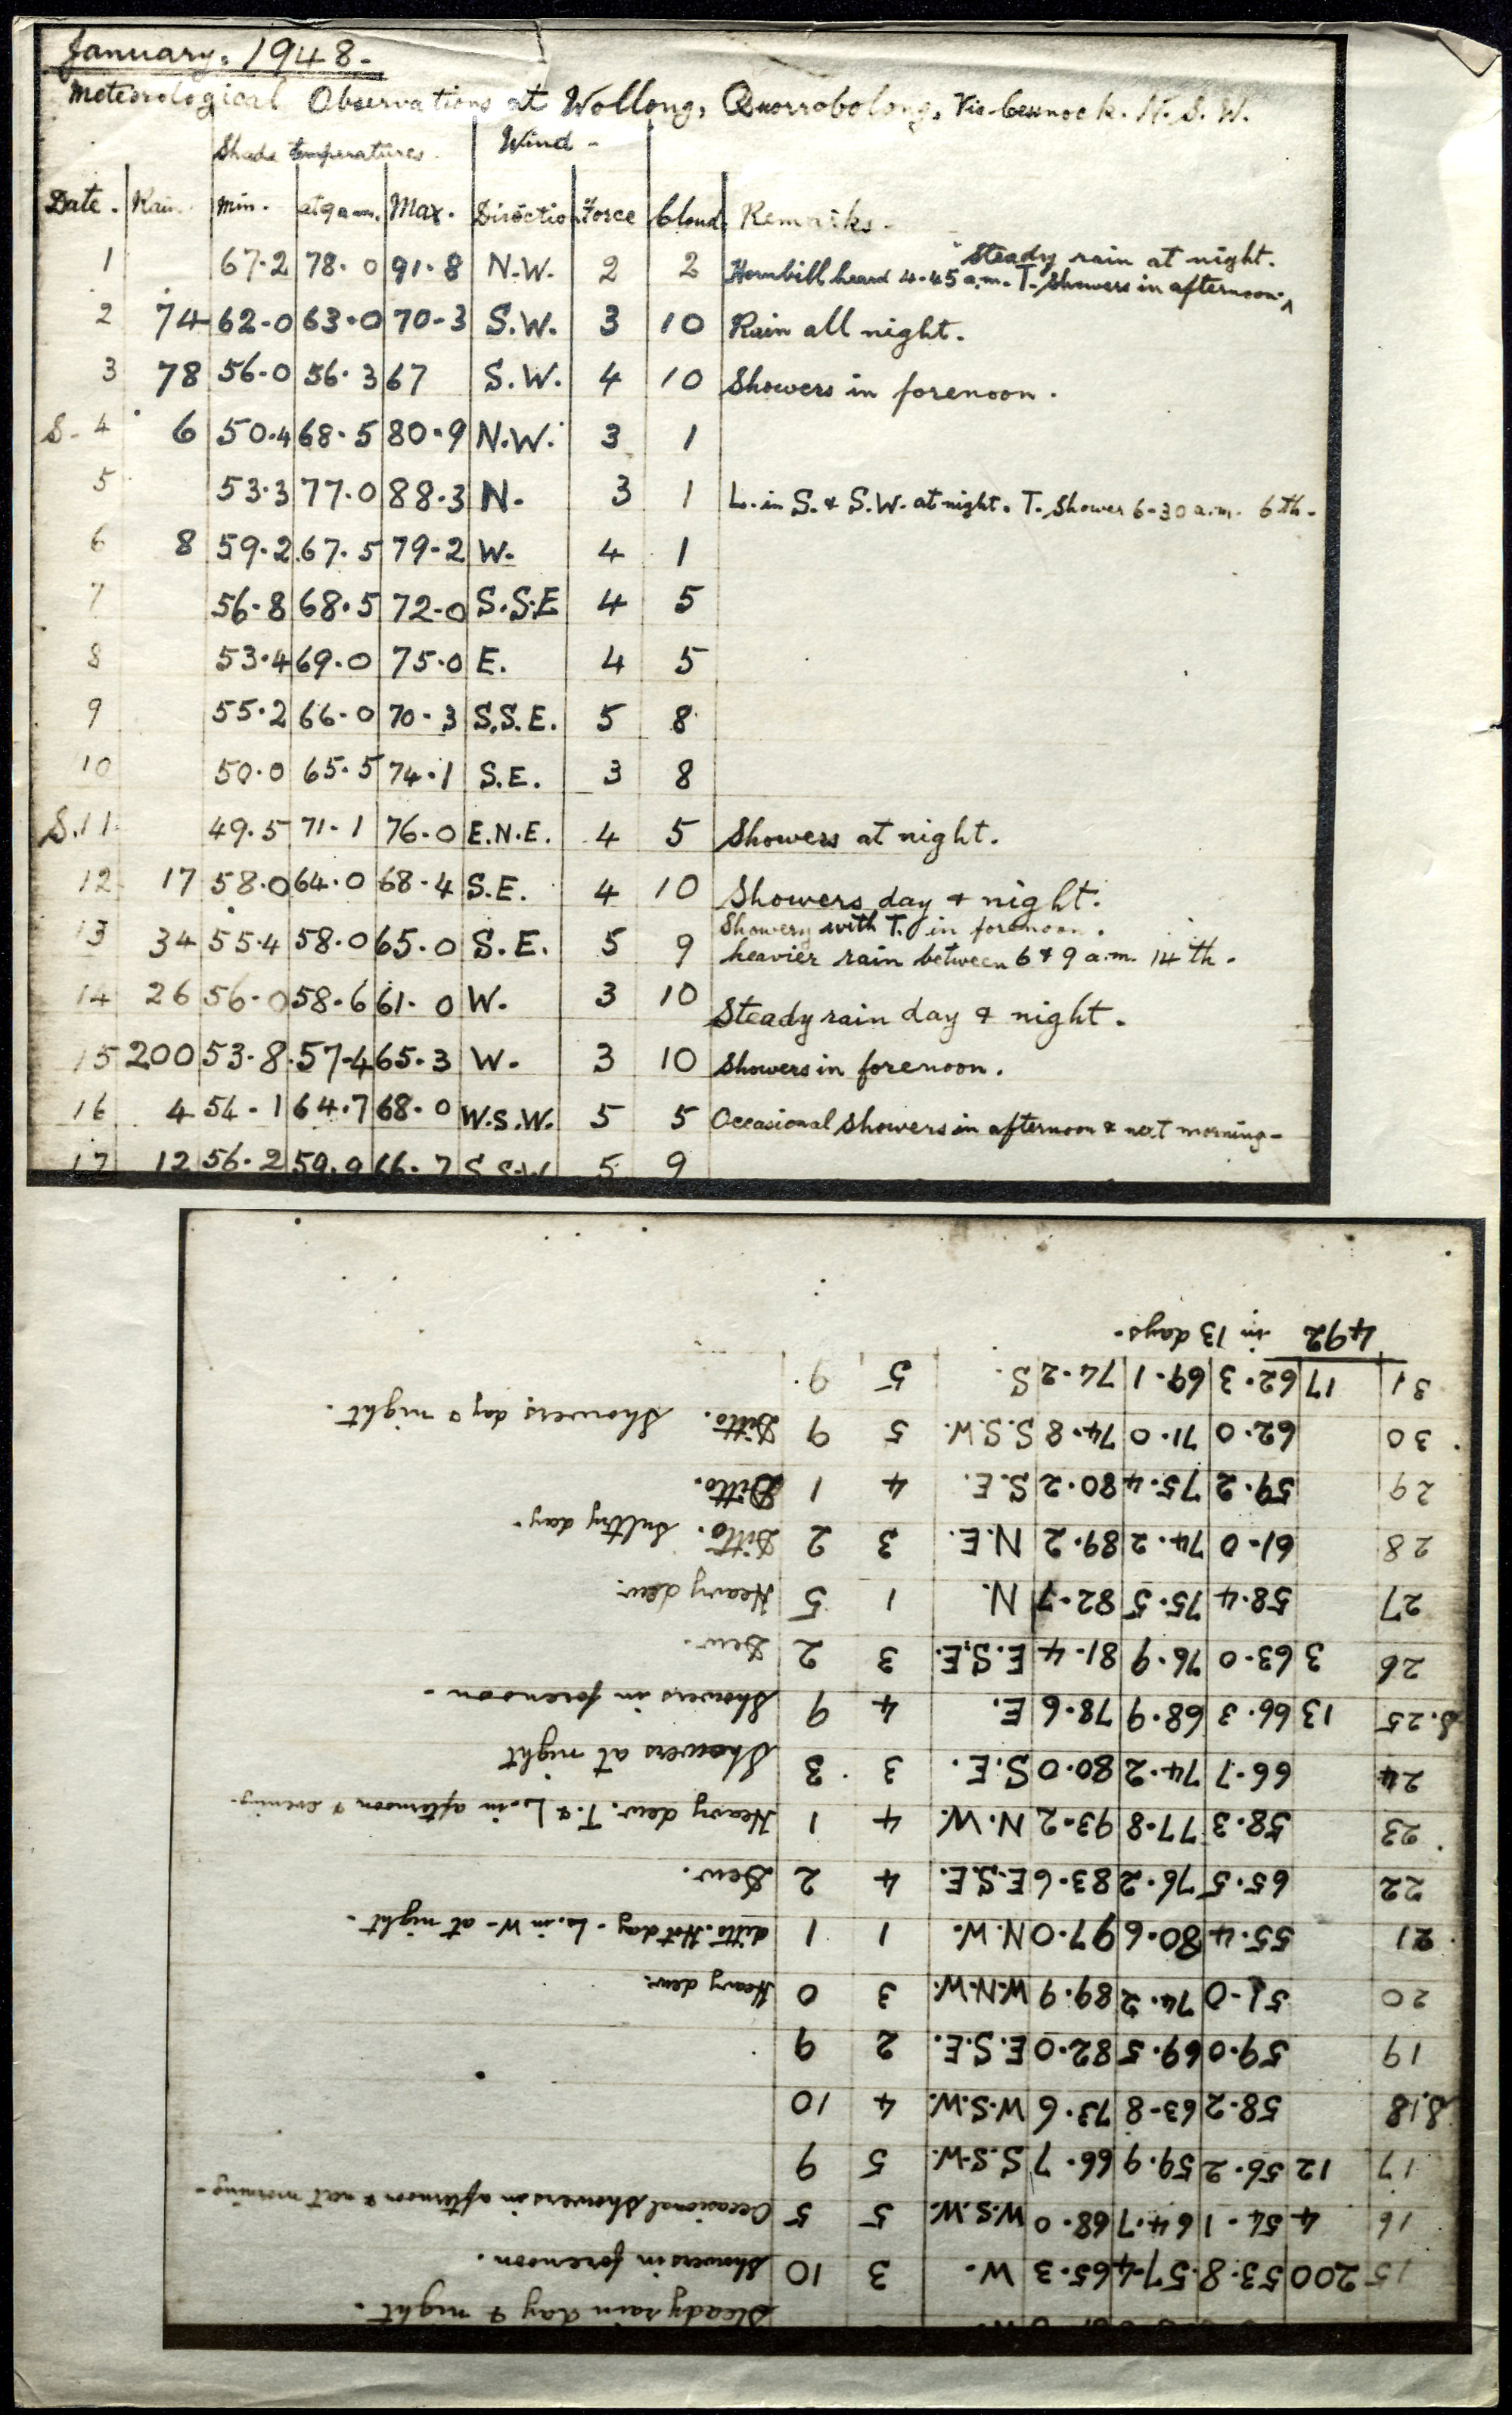 January. 1948.
Meteorological Observations at Wollong, Quorrobolong, Via Cessnock. N. S. W.
Shade temperatures. Wind -
Date. Rain. Min. at 9 a.m. Max. Direction Force Cloud Remarks.
Steady rain at night.
1 67.2 78.0 91.8 N.W. 2 2 Hornbill heard 4.45 a.m. T. Showers in afternoon. ^
2 74 62.0 63.0 70.3 S.W. 3 10 Rain all night.
3 78 56.0 56.3 67 S.W. 4 10 Showers in forenoon.
S. 4 6 50.4 68.5 80.9 N.W. 3 1
5 53.3 77.0 88.3 N. 3 1 L. in S. & S.W. at night. T. Shower 6-30 a.m. 6th.
6 8 59.2 67.5 79.2 W. 4 1
7 56.8 68.5 72.0 S.S.E 4 5
8 53.4 69.0 75.0 E. 4 5
9 55.2 66.0 70.3 S.S.E. 5 8
10 50.0 65.5 74.1 S.E. 3 8
S. 11 49.5 71.1 76.0 E.N.E. 4 5 Showers at night.
12 17 58.0 64.0 68.4 S.E. 4 10 Showers day & night.
Showery with T. in forenoon.
13 34 55.4 58.0 65.0 S.E. 5 9 heavier rain between 6 & 9 a.m. 14th.
14 26 56.0 58.6 61.0 W. 3 10 Steady rain day & night.
15 200 53.8 57.4 65.3 W. 3 10 Showers in forenoon.
16 4 54.1 64.7 68.0 W.S.W. 5 5 Occasional Showers in afternoon & next morning-
17 12 56.2 59.9 66.7 S.S.W 5 9
Steady rain day & night.
15 200 53.8 57.4 65.3 W. 3 10 Showers in forenoon.
16 4 54.1 64.7 68.0 W.S.W. 5 5 Occasional Showers in afternoon & next morning-
17 12 56.2 59.9 66.7 S.S.W. 5 9
S. 18 58.2 63.8 73.6 W.S.W. 4 10
19 59.0 69.5 82.0 E.S.E. 2 9
20 51.0 74.2 89.9 W.N.W. 3 0 Heavy dew.
21 55.4 80.6 97.0 N.W. 1 1 ditto. Hot day. L. in W. at night.
22 65.5 76.2 83.6 E.S.E. 4 2 Dew.
23 58.3 77.8 93.2 N.W. 4 1 Heavy dew. T. & L. in afternoon & evening.
24 66.7 74.2 80.0 S.E. 3 3 Showers at night
S. 25 13 66.3 68.9 78.6 E. 4 9 Showers in forenoon.
26 3 63.0 76.9 81.4 E.S.E. 3 2 Dew.
27 58.4 75.5 82.7 N. 1 5 Heavy dew.
28 61.0 74.2 89.2 N.E. 3 2 Ditto. Sultry day.
29 59.2 75.4 80.2 S.E. 4 1 Ditto.
30 62.0 71.0 74.8 S.S.W. 5 9 Ditto. Showers, day & night.
31 17 62.3 69.1 74.2 S. 5 9.
492 in 13 days.